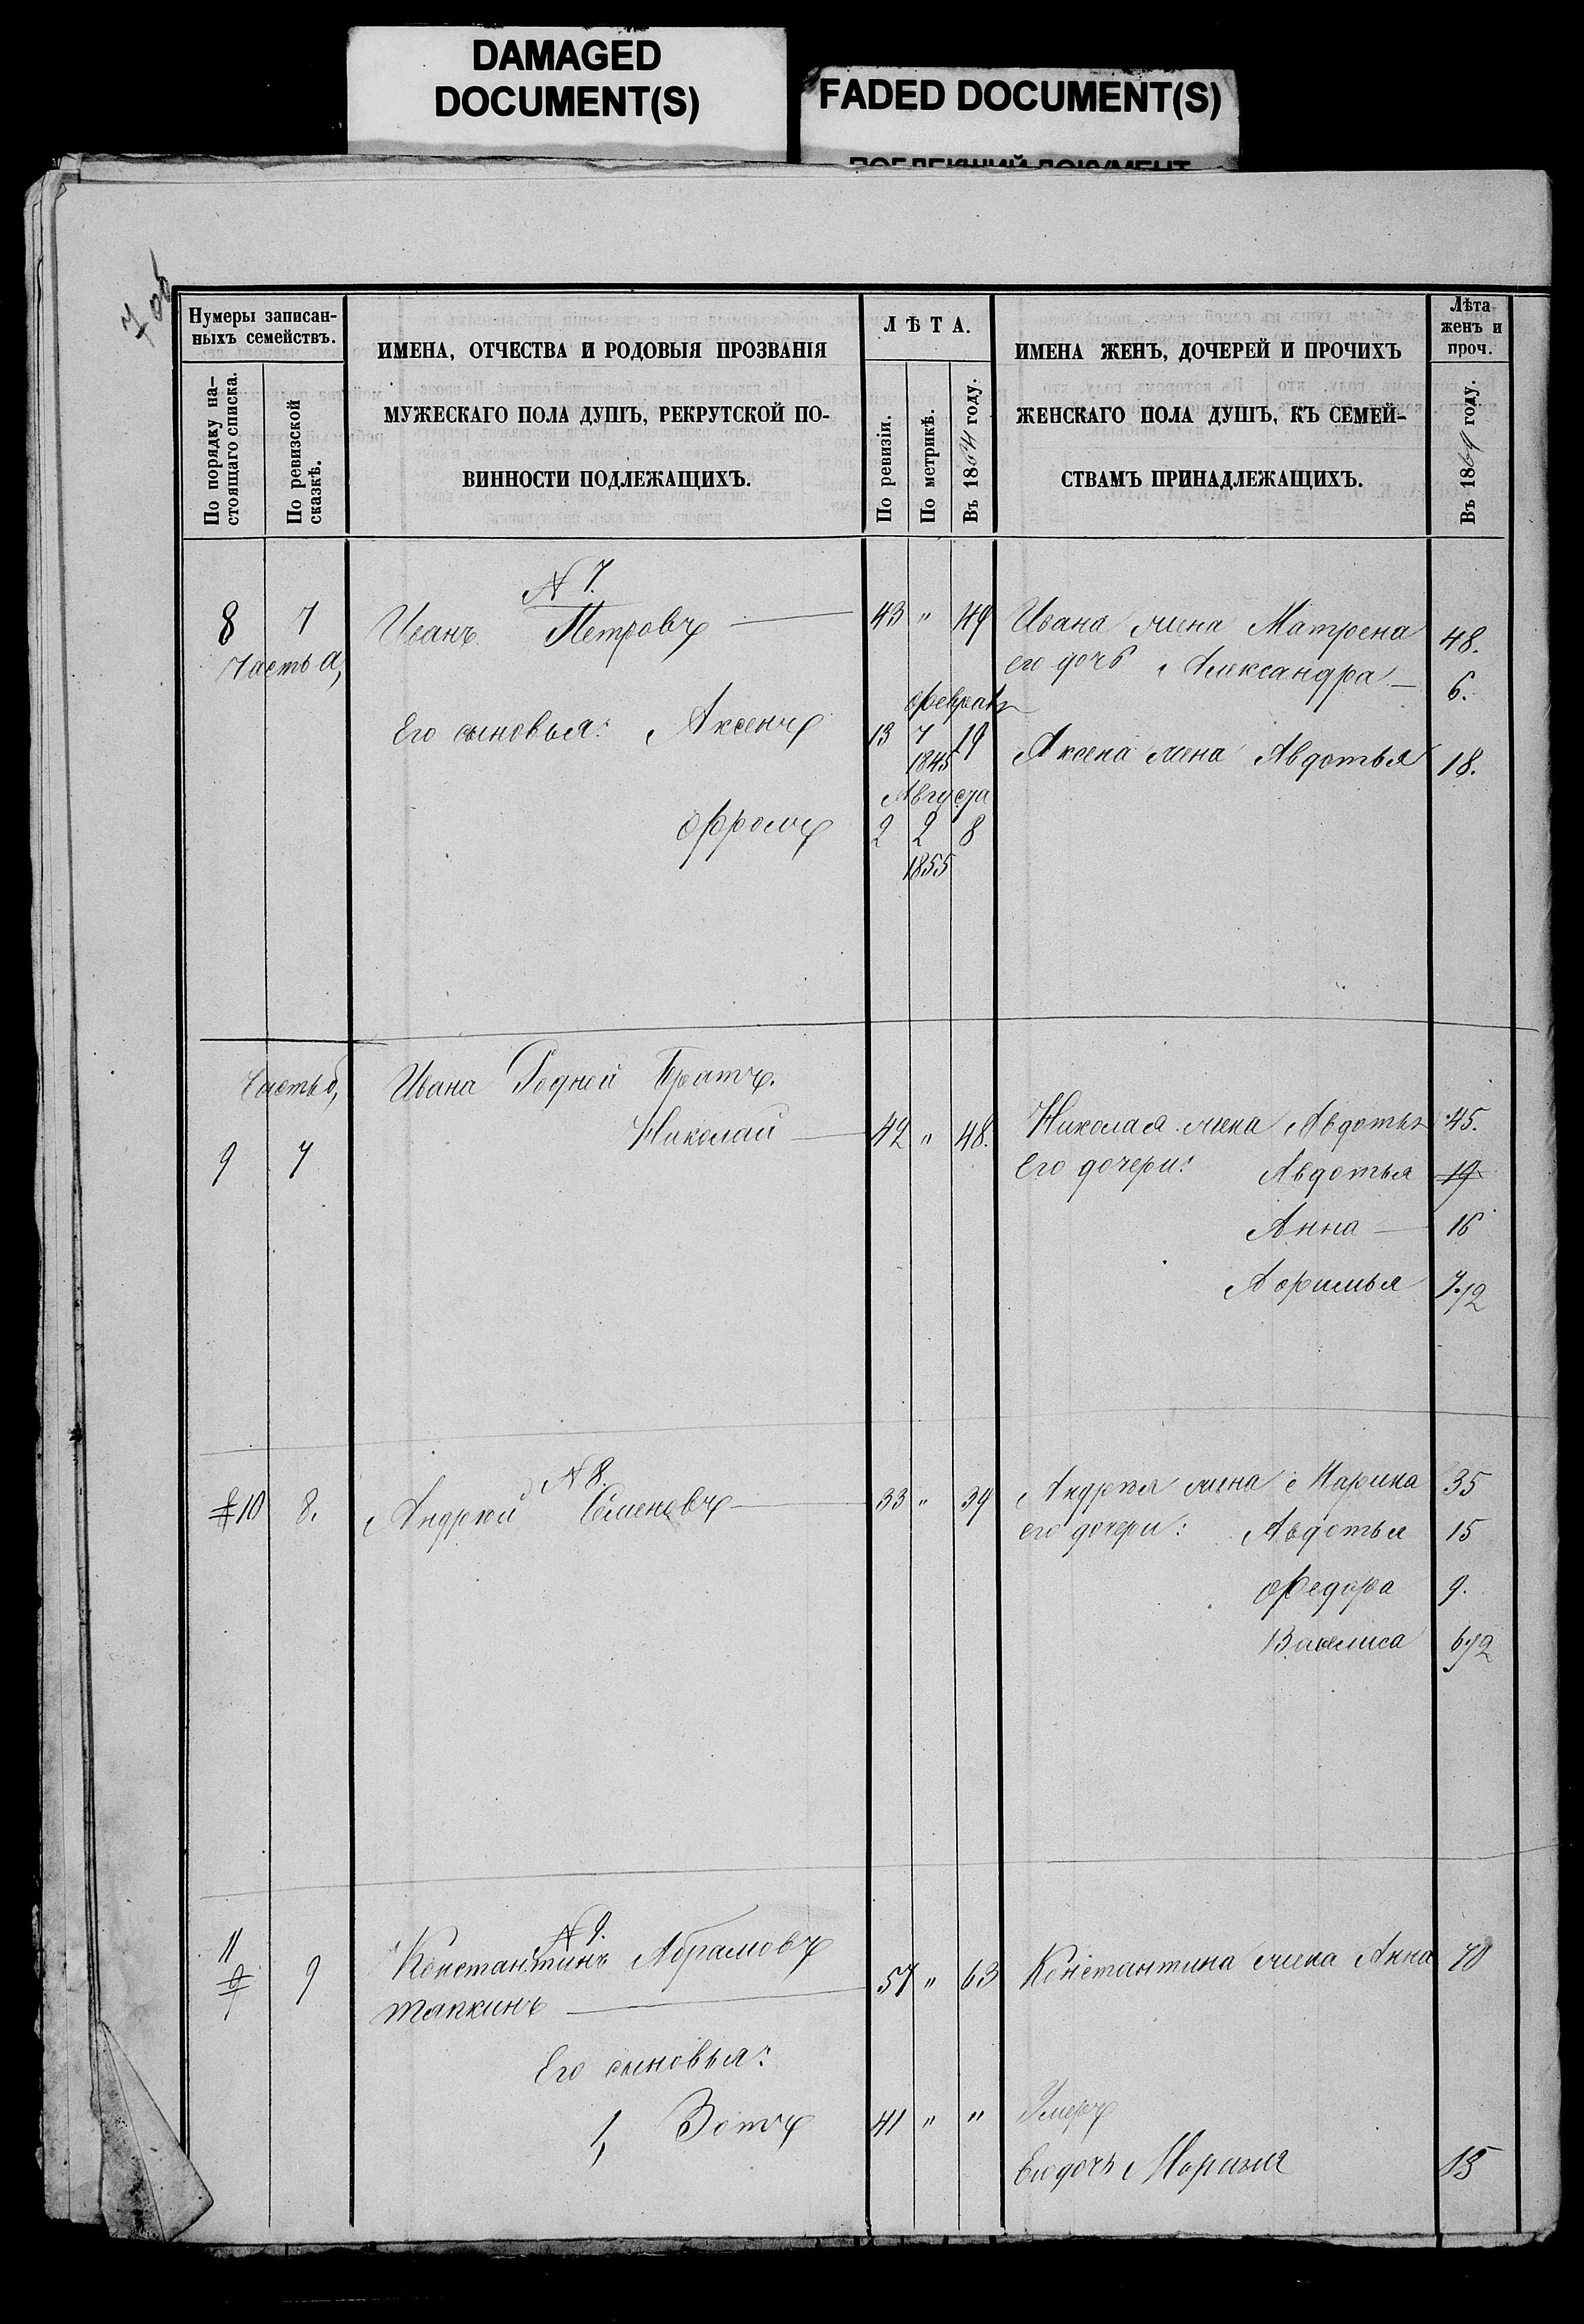 DAMAGED
DOCUMENT(S)
FADED DOCUMENT(S)
7 об
Нумеры записан-
ныхъ семействъ.
По порядку на-
стоящаго списка.
По ревизской
сказкѣ.
ИМЕНА, ОТЧЕСТВА И РОДОВЫЯ ПРОЗВАНІЯ
МУЖЕСКАГО ПОЛА ДУШЪ, РЕКРУТСКОЙ ПО-
ВИННОСТИ ПОДЛЕЖАЩИХЪ.
ЛѢТА.
По ревизіи.
По метрикѣ.
Въ 1864 году.
ИМЕНА ЖЕНЪ, ДОЧЕРЕЙ И ПРОЧИХЪ
ЖЕНСКАГО ПОЛА ДУШЪ, КЪ СЕМЕЙ-
СТВАМЪ ПРИНАДЛЕЖАЩИХЪ.
Лѣта
женъ и
проч.
Въ 1864 году.
N 7.
8 7 Иванъ Петровъ 43 " 49 Ивана жена Матрена 48.
Часть а, его дочь Александра 6.
Его сыновья: Аксенъ 13 Февраля 7 1845 19 Аксена жена Авдотья 18.
Августа
Фролъ 2 2 8
1855
Часть б, Ивана Родной Братъ.
9 7 Николай 42 " 48. Николая жена Авдотья 45.
Его дочери: Авдотья 19
Анна 16
Афимья 7 1/2
N 8.
10 8. Андрей Семеновъ 33 " 39 Андрея жена Марина 35
его дочери: Авдотья 15
Федора 9.
Василиса 6 1/2
N 9.
11 9 Константинъ Абрамовъ
Тяпкинъ 57 " 63 Константина жена Анна 70
Его сыновья:
1, Зотъ 41 " " Умеръ
Его дочь 15